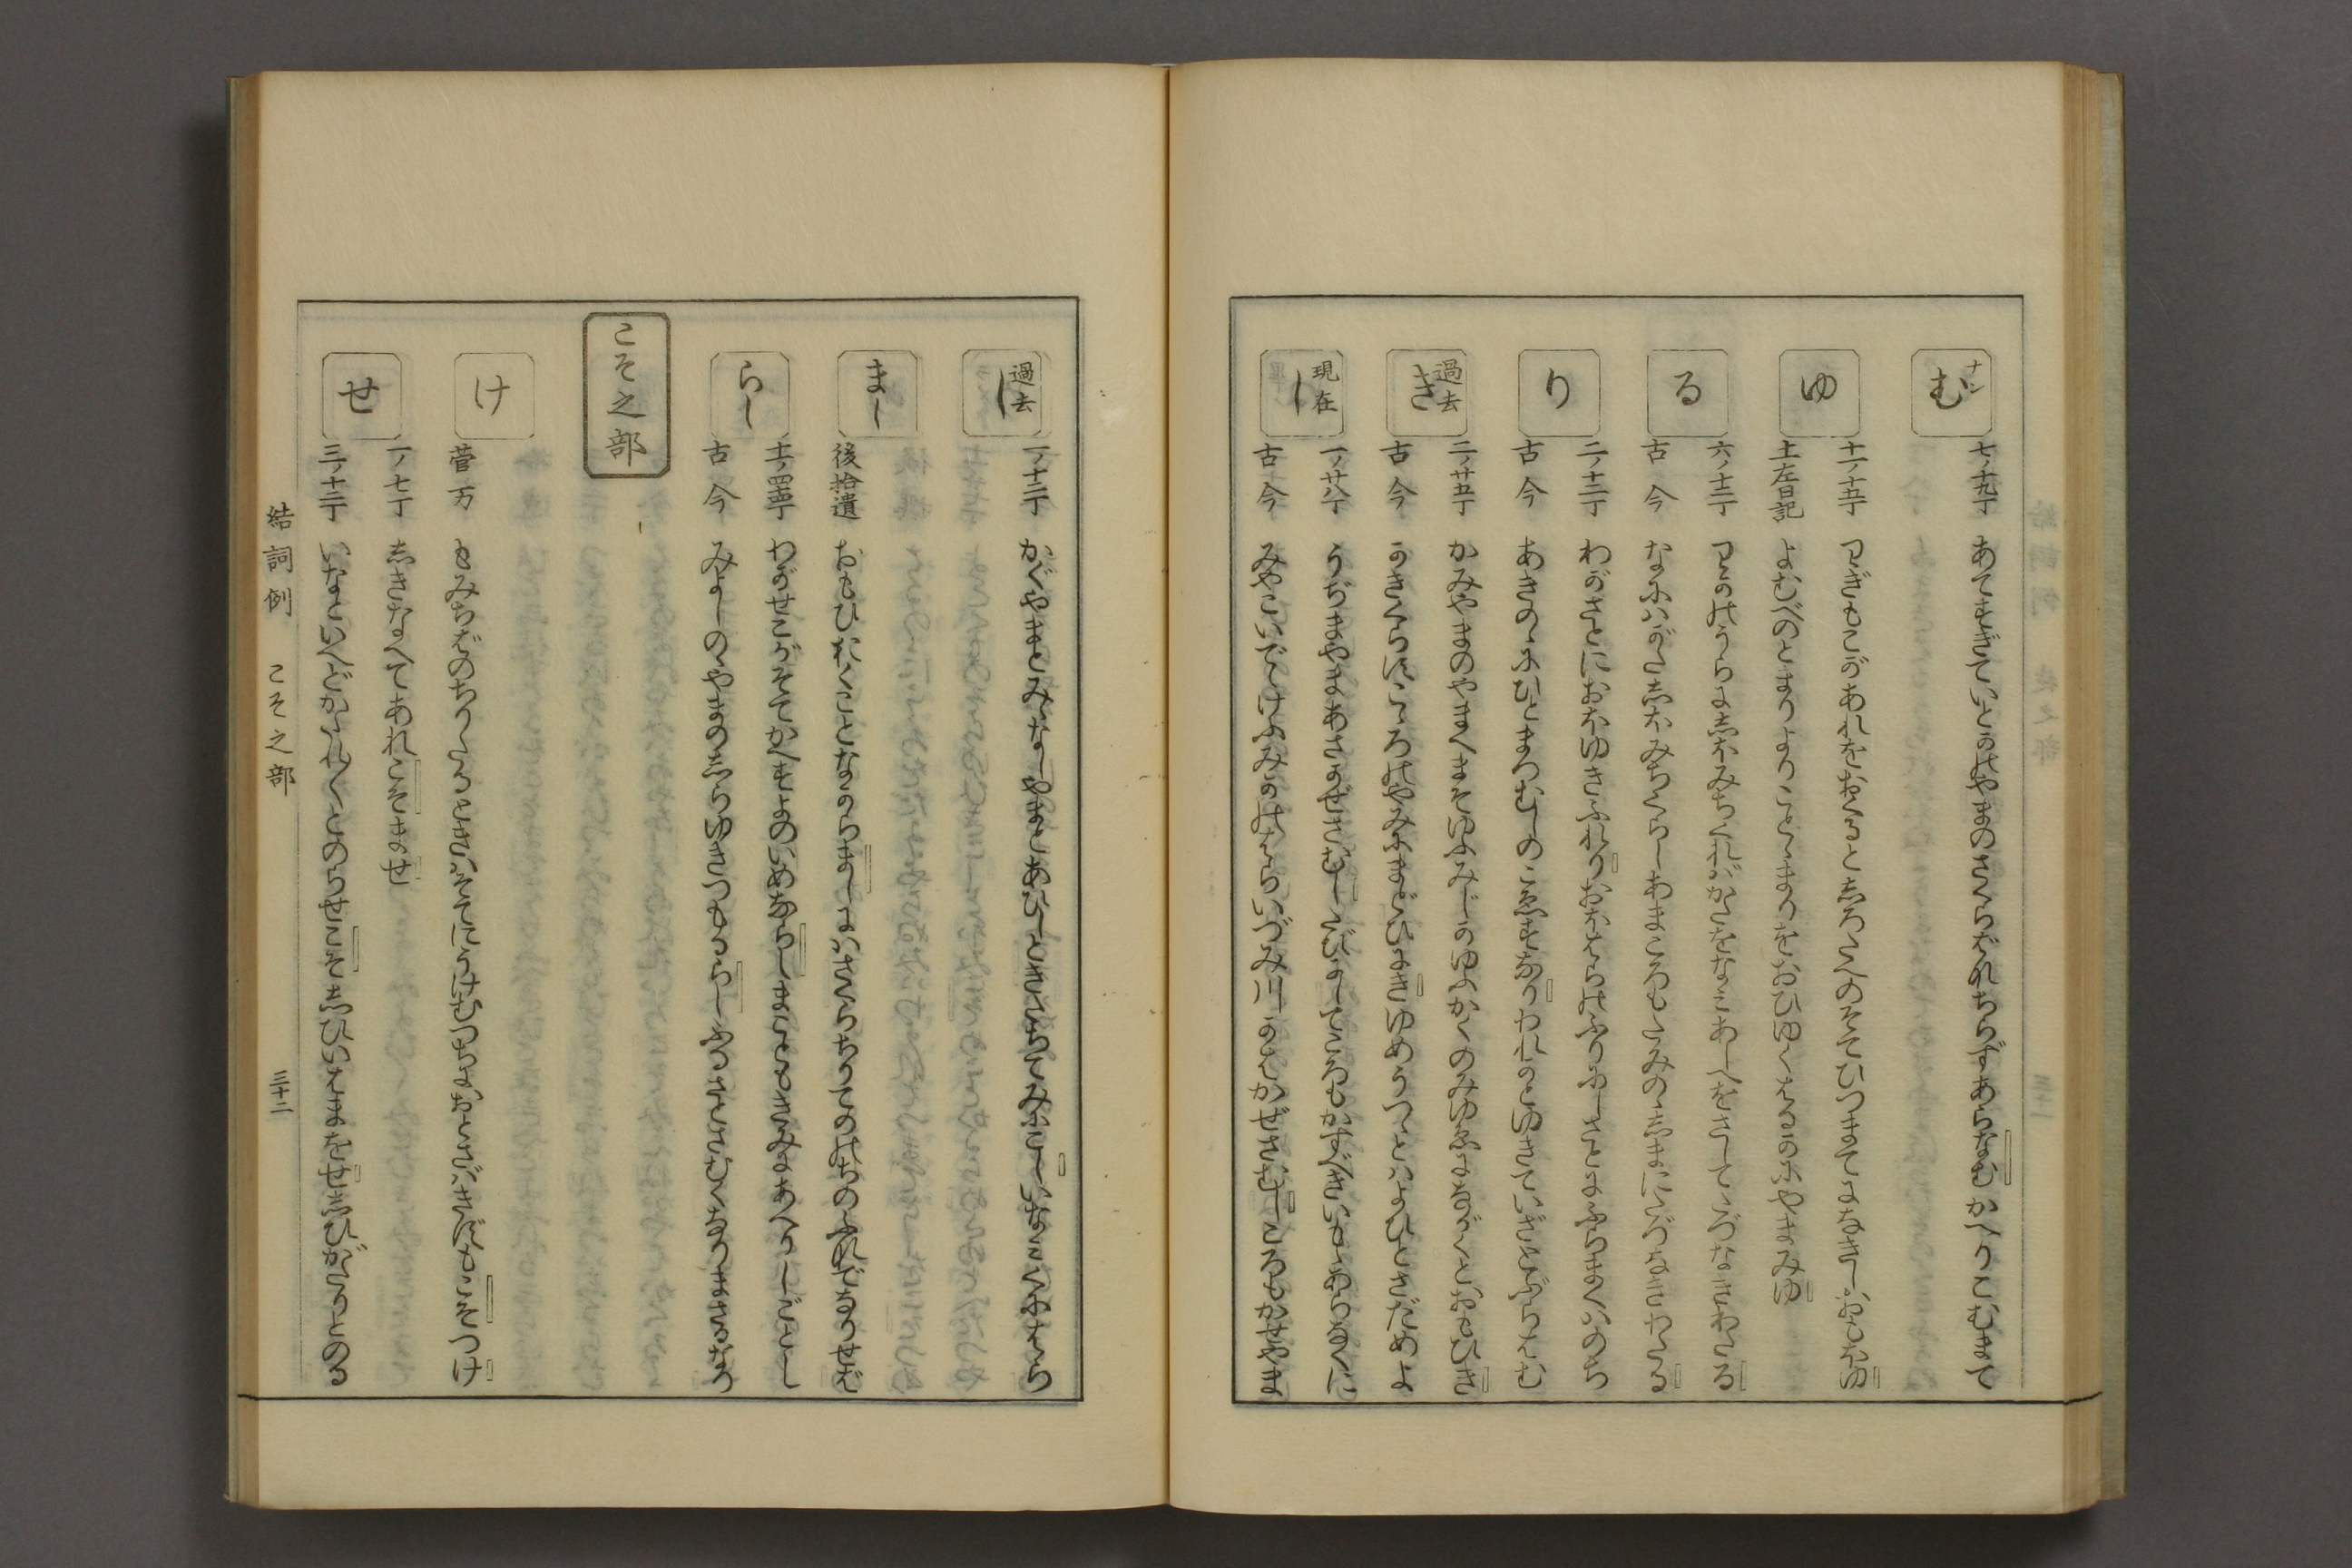 ナン
む
七ノ十九丁 あてすぎていとかのやまのさくらばなちらずあらなむかへりこむまて
ゆ
十一ノ十五丁 わぎもこがあれをおくるとしろたへのそてひつまてになきしおもほゆ
土左日記 よむべのとまりよりことゝまりをおひゆくはるかにやまみゆ
る
六ノ十二丁 わかのうらにしほみちくればかたをなみあしへをさしてたづなきわたる
古今 なにはがたしほみちくらしあまころもたみのゝしまにたづなきわたる
り
二ノ十二丁 わがさとにおほゆきふれりおほはらのふりにしさとにふらまくはのち
古今 あきのゝにひとまつむしのこゑすなりわれかとゆきていざとぶらはむ
過去
き
二ノ廿五丁 かみやまのやまへまそゆふみじかゆふかくのみゆゑにながくとおもひき
古今 かきくらすこゝろのやみにまどひにきゆめうつゝとはよひとさだめよ
現在
し
一ノ廿八丁 うぢまやまあさかぜさむしたびにしてころもかすべきいもゝあらなくに
古今 みやこいでゝけふみかのはらいづみ川かはかぜさむしころもかせやま
過去
し
一ノ十二丁 かぐやまとみゝなしやまとあひしときたちてみにこしいなみくにはら
まし
後拾遺 おもひおくことなからましにはさくらちりてのゝちのふねでなりせば
らし
十一ノ四十五丁 わがせこがそてかへすよのいめならしまこともきみにあへりしごとし
古今 みよしのゝやまのしらゆきつもるらしふるさとさむくなりまさるなり
こそ之部
け
菅万 もみちばのちりくるときはそてにうけむつちにおとさばきずもこそつけ
せ
一ノ七丁 しきなへてあれこそませ
三ノ十二丁 いなといへどかたれ〳〵とのらせこそしひいはまをせしひがたりとのる
結詞例 こそ之部 三十二